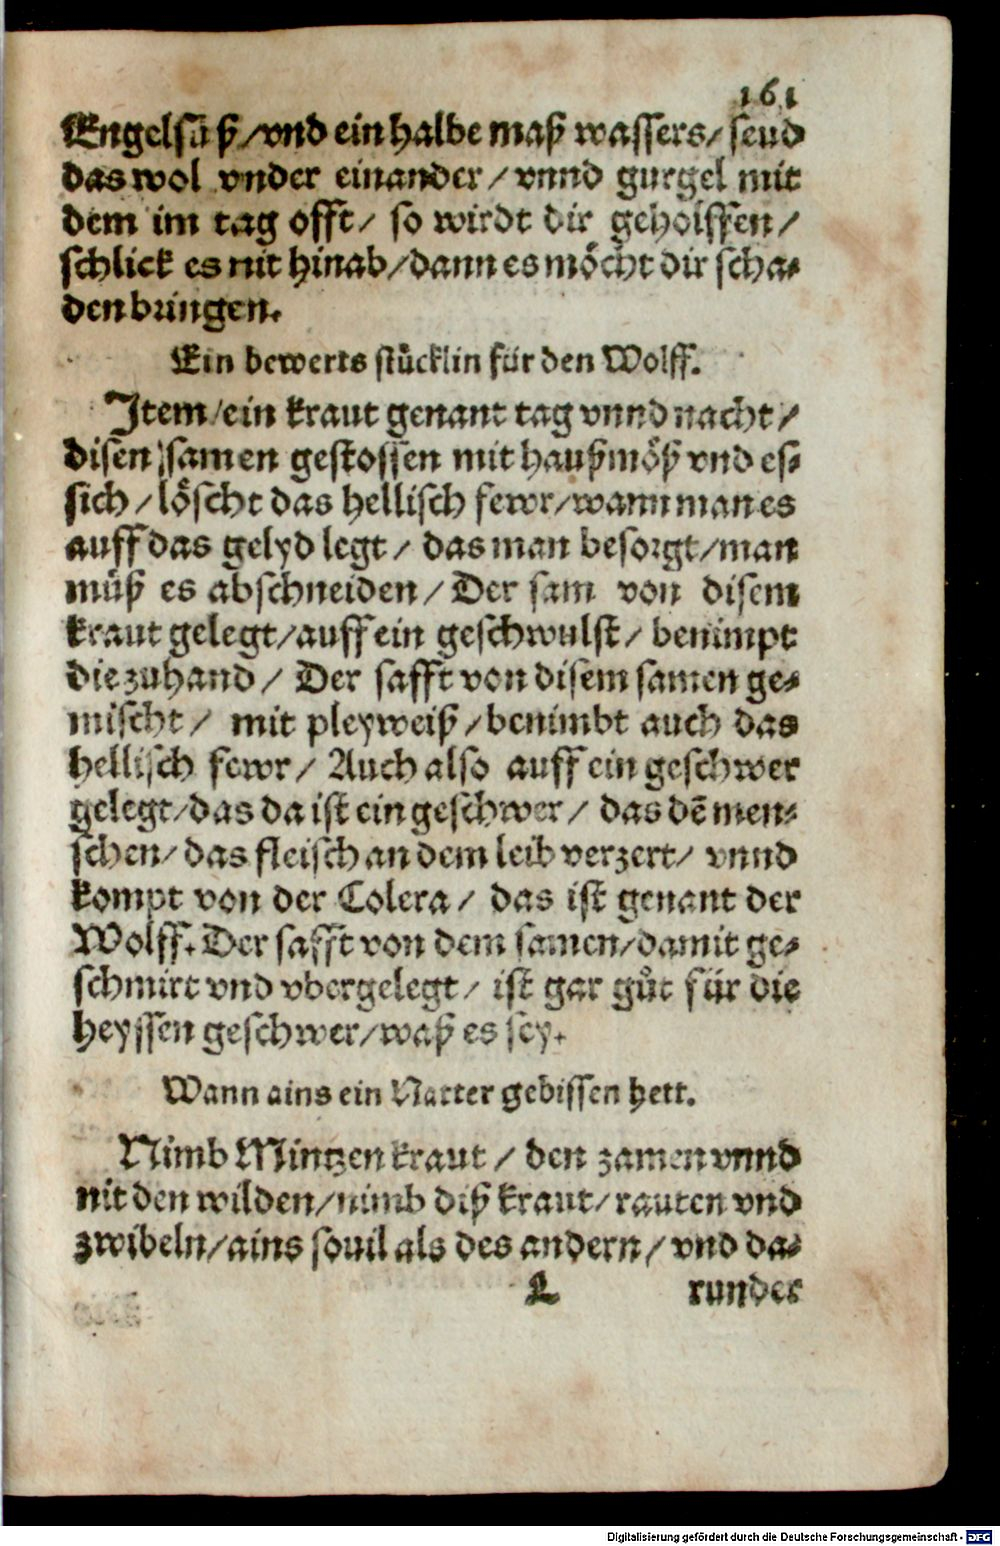 161
Engelsüß/vnd ein halbe maß wassers/seud
das wol vnder einander/vnnd gurgel mit
dem im tag offt/ so wirdt dir geholffen/
schlick es nit hinab/dann es möcht dir scha⸗
den bringen.
Ein bewerts stücklin für den Wolff.
Item/ein kraut genant tag vnnd nacht/
disen samen gestossen mit haußmöß vnd es⸗
sich/löscht das hellisch fewr/wann man es
auff das gelyd legt/ das man besorgt/man
müß es abschneiden/Der sam von disem
kraut gelegt/auff ein geschwulst/ benimpt
die zuhand/ Der safft von disem samen ge⸗
mischt/ mit pleyweiß/benimbt auch das
hellisch fewr/ Auch also auff ein geschwer
gelegt/das da ist ein geschwer/ das dē men⸗
schen/das fleisch an dem leib verzert/ vnnd
kompt von der Colera/ das ist genant der
Wolff. Der safft von dem samen/damit ge⸗
schmirt vnd vbergelegt/ ist gar gůt für die
heyssen geschwer/waß es sey.
Wann ains ein Natter gebissen hett.
Nimb Mintzen kraut/ den zamen vnnd
nit den wilden/nimb diß kraut/rauten vnd
zwibeln/ains souil als des andern/vnd da⸗
L runder
Digitalisierung gefördert durch die Deutsche Forschungsgemeinschaft - DFG